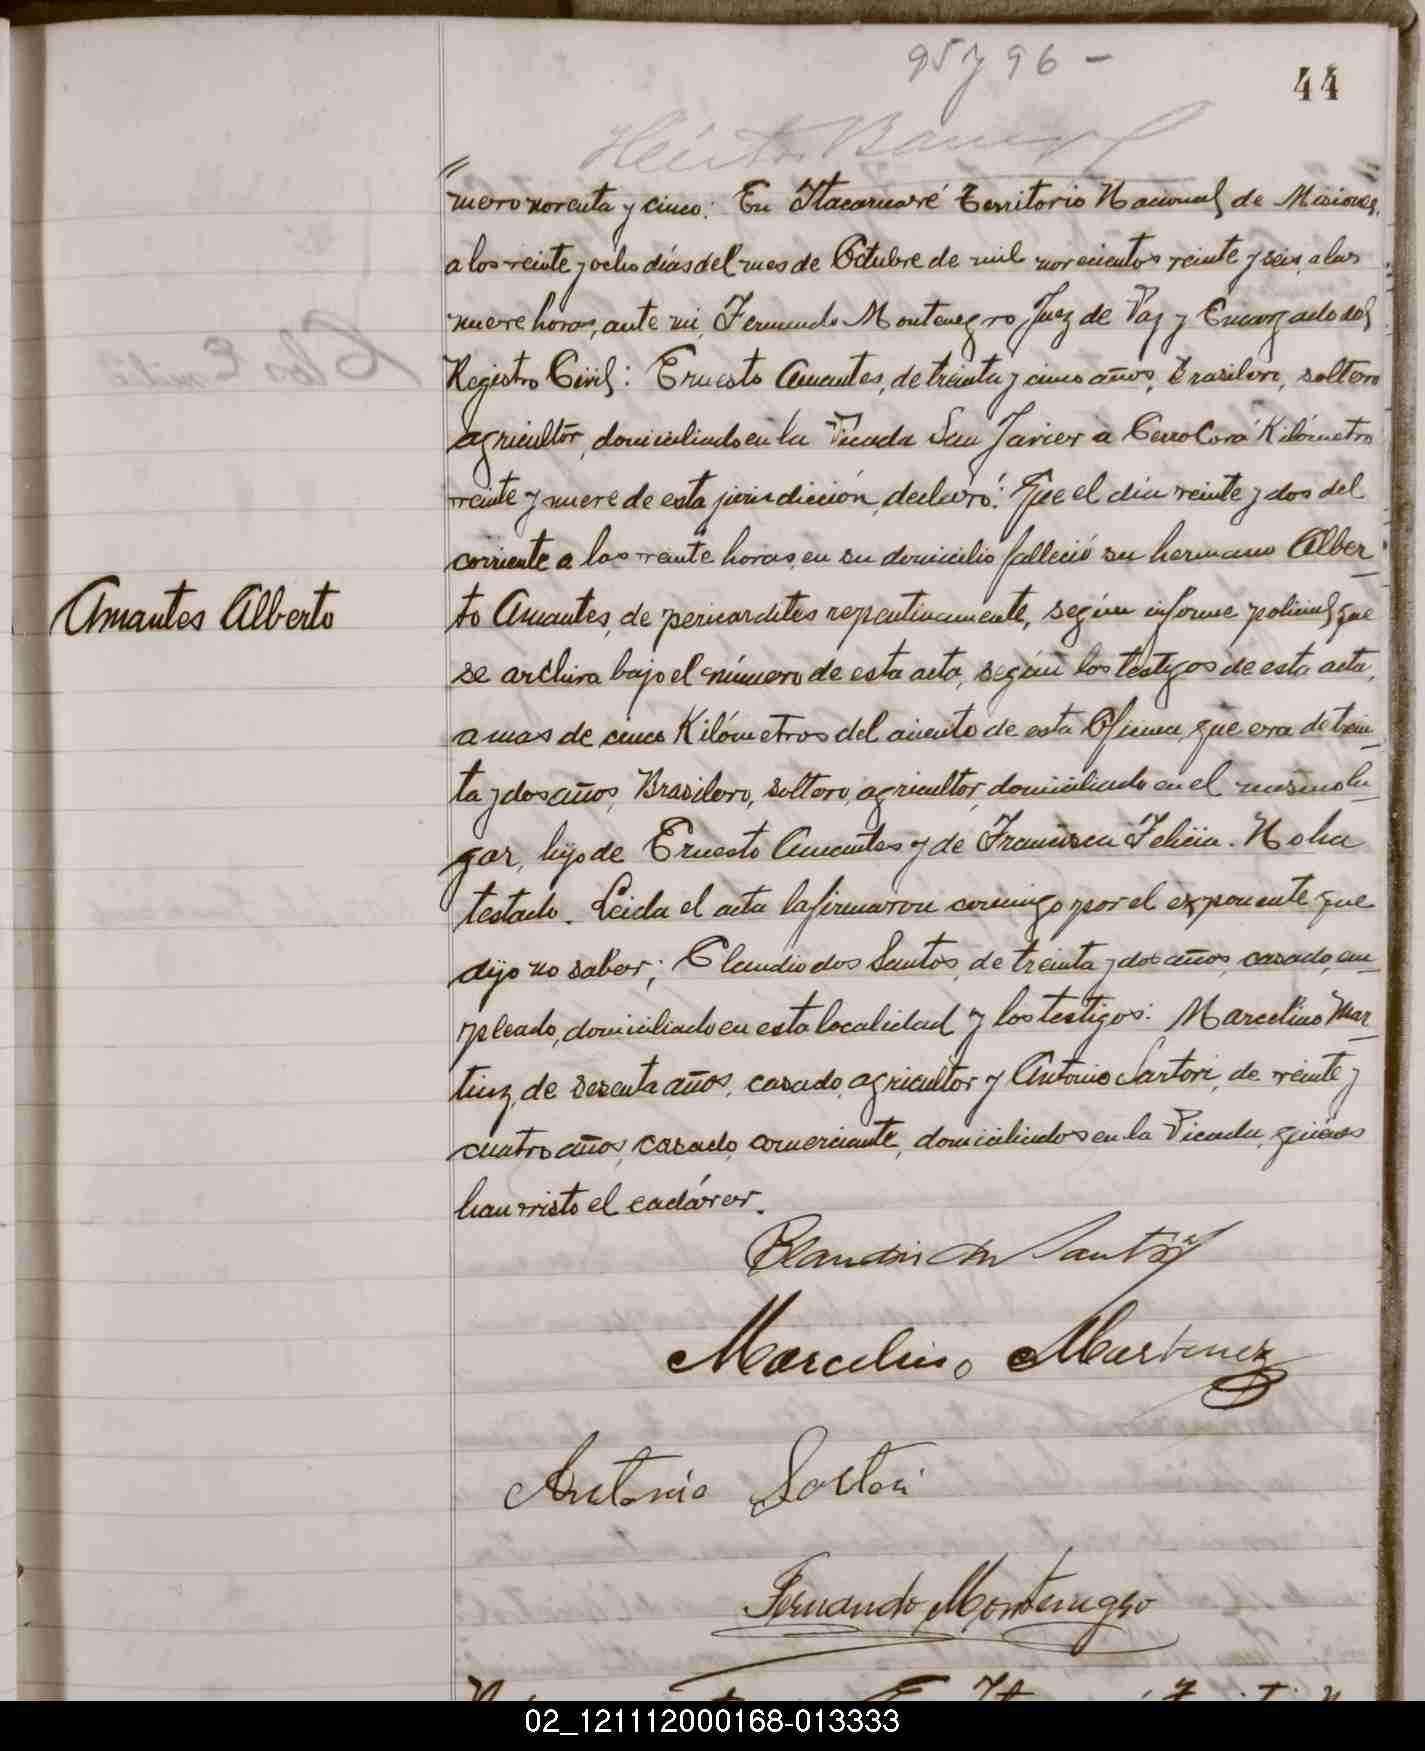 95 y 96 -
44
mero noventa y cinco: En Itacaruaré Territorio Nacional de Misiones,
a los veinte y ocho días del mes de Octubre de mil novecientos veinte y seis, a las
nueve horas, ante mi, Fernando Montenegro Juez de Paz y Encargado del
Registro Civil: Ernesto Amantes, de treinta y cinco años, Brasilero, soltero
agricultor, domiciliado en la Picada San Javier a Cerro Corá Kilómetro
veinte y nueve de esta jurisdicción, declaró: Que el día veinte y dos del
corriente a las veinte horas, en su domicilio falleció su hermano Alber-
Amantes Alberto
to Amantes, de pericarditis repentinamente, según informe policial que
se archiva bajo el número de esta acta, según los testigos de esta acta,
a mas de cinco Kilómetros del asiento de esta Oficina, que era de trein-
ta y dos años, Brasilero, soltero, agricultor, domiciliado en el mismo lu-
gar, hijo de Ernesto Amantes y de Francisca Felicia. No ha
testado. Leida el acta la firmaron conmigo por el exponente que
dijo no saber; Claudio dos Santos, de treinta y dos años, casado, em-
pleado, domiciliado en esta localidad y los testigos: Marcelino Mar-
tinz, de sesenta años, casado, agricultor y Antonio Sartori, de veinte y
cuatro años, casado, comerciante, domiciliados en la Picada, quienes
han visto el cadáver.
Claudio dos Santos
Marcelino Martinez
Antonio Sartori
Fernando Montenegro
02_121112000168-013333